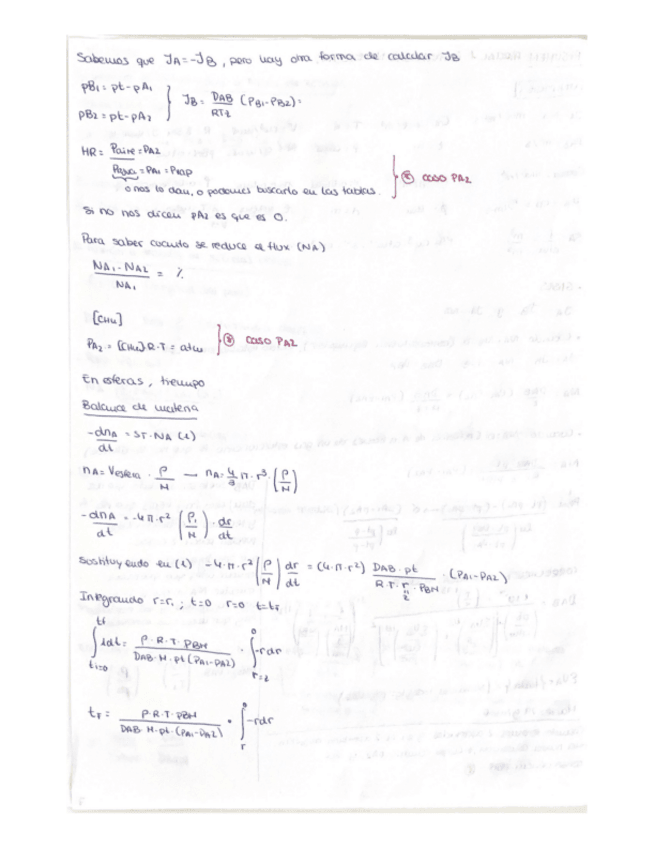 Sabemos que JA=-JB, pero hay otra forma de calcular JB
pB1 = pt-pA1
pB2 = pt-pA2
JB = DAB/RTz (PB1-PB2)=
HR = Paire = PA2
Pagua = PA1 = Pvap
o nos lo dan, o podemos buscarlo en las tablas.
⊛ caso PA2
Si no nos dicen pA2 es que es 0.
Para saber cuanto se reduce el flux (NA)
NA1 - NA2 / NA1 = %
[CH4]
PA2 = [CH4]·R·T = atm
⊛ caso PA2
En esferas, tiempo
Balance de materia
-dnA/dt = ST·NA (1)
nA = Vesfera · ρ/M → nA = 4/3 π·r³·(ρ/M)
-dnA/dt = -4π·r² (ρ/M) · dr/dt
Sustituyendo en (1) -4·π·r² (ρ/M) dr/dt = (4·π·r²) DAB·pt / R·T·r·PBM · (PA1-PA2)
z
Integrando r=r1; t=0 r=0 t=tF
∫ 1dt = ρ·R·T·PBM / DAB·M·pt(PA1-PA2) · ∫ -rdr
tf
ti=0
0
r=z
tF = ρ·R·T·PBM / DAB·M·pt·(PA1-PA2) · ∫ -rdr
0
r